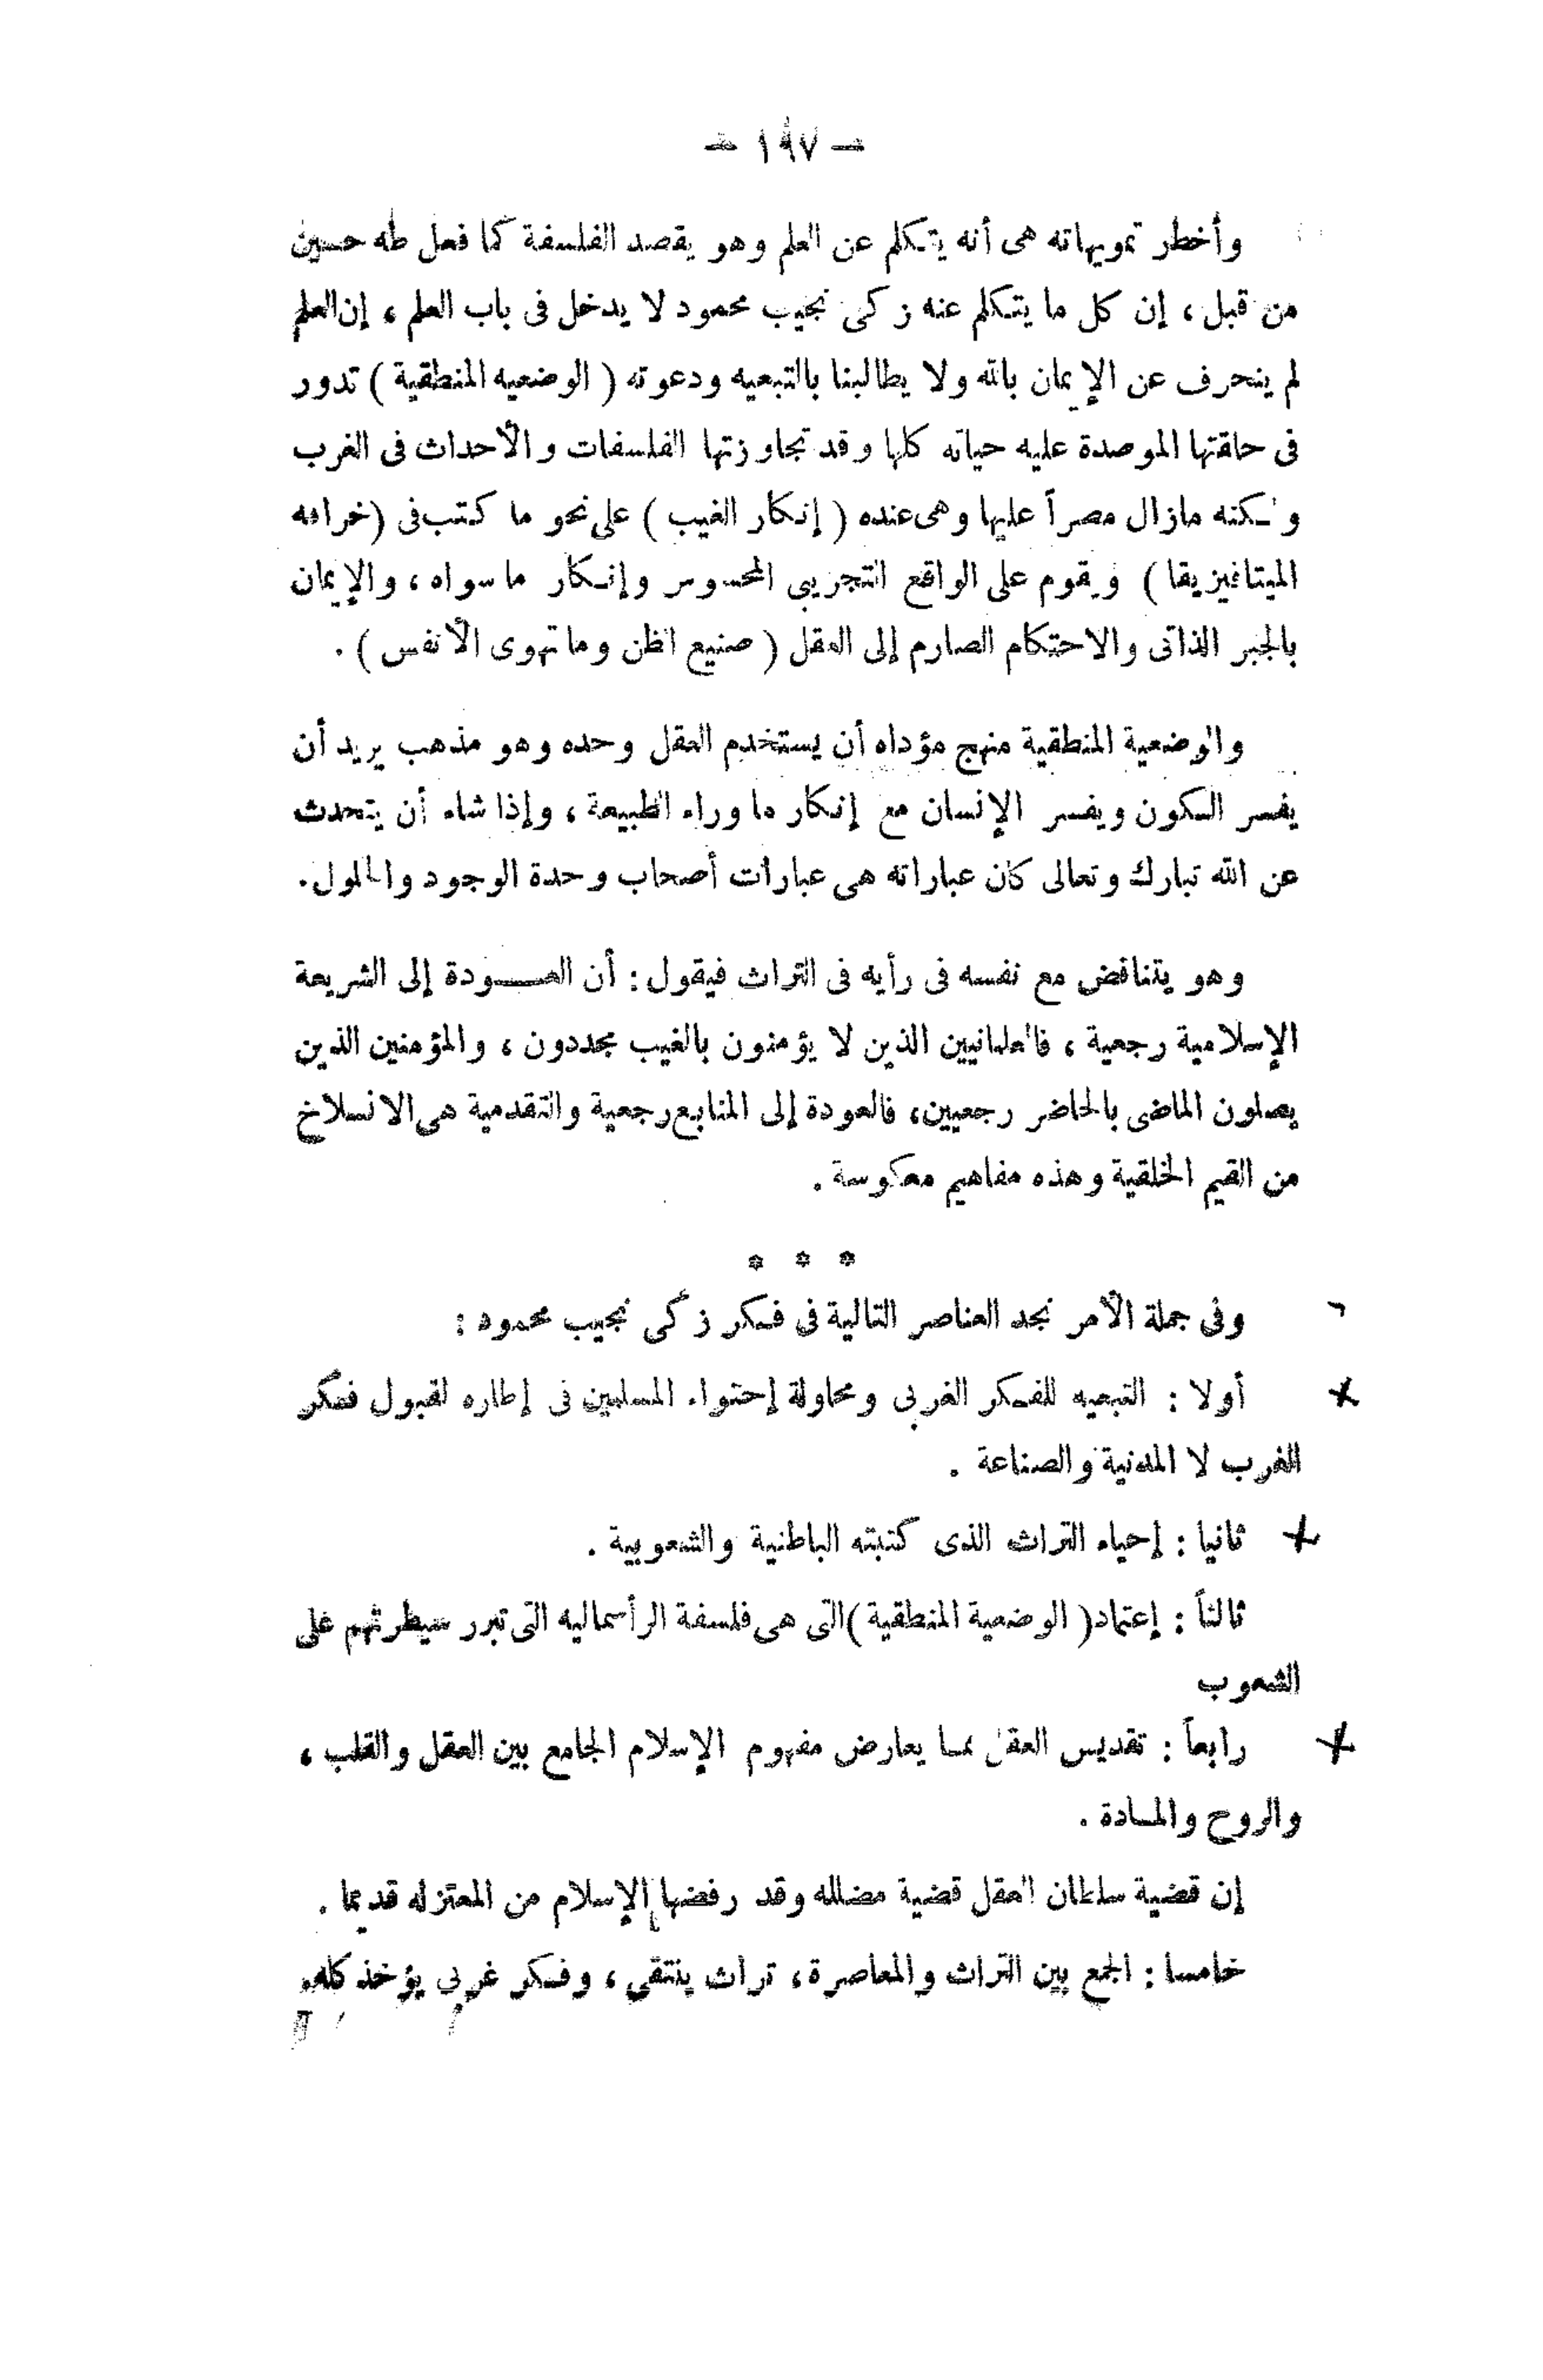 - ١٩٧ -
وأخطر تمويهاته هى أنه يتكلم عن العلم وهو يقصد الفلسفة كما فعل طه حسين
من قبل ، إن كل ما يتكلم عنه زكى نجيب محمود لا يدخل فى باب العلم ، إن العلم
لم ينحرف عن الإيمان بالله ولا يطالبنا بالتبعيه ودعوته ( الوضعيه المنطقية ) تدور
فى حلقتها الموصدة عليه حياته كلها وقد تجاوزتها الفلسفات والأحداث فى الغرب
ولكنه مازال مصراً عليها وهى عنده ( إنكار الغيب ) على نحو ما كتب فى (خرافه
الميتافيزيقا ) ويقوم على الواقع التجريبى المحسوس وإنكار ما سواه ، والإيمان
بالجبر الذاتى والاحتكام الصارم إلى العقل ( صنيع الظن وما تهوى الأنفس ) .
والوضعية المنطقية منهج مؤداه أن يستخدم العقل وحده وهو مذهب يريد أن
يفسر الكون ويفسر الإنسان مع إنكار ما وراء الطبيعة ، وإذا شاء أن يتحدث
عن الله تبارك وتعالى كان عباراته هى عبارات أصحاب وحدة الوجود والحلول.
وهو يتناقض مع نفسه فى رأيه فى التراث فيقول : أن العودة إلى الشريعة
الإسلامية رجعية ، فالعلمانيين الذين لا يؤمنون بالغيب مجددون ، والمؤمنين الذين
يصلون الماضى بالحاضر رجعيين، فالعودة إلى المنابع رجعية والتقدمية هى الانسلاخ
من القيم الخلقية وهذه مفاهيم معكوسة .
* * *
وفى جملة الأمر نجد العناصر التالية فى فكر زكى نجيب محمود :
أولا : التبعيه للفكر الغربى ومحاولة إحتواء المسلمين فى إطاره لقبول فكر
الغرب لا المدنية والصناعة .
ثانيا : إحياء التراث الذى كتبته الباطنية والشعوبية .
ثالثاً : إعتماد ( الوضعية المنطقية )التى هى فلسفة الرأسماليه التى تبرر سيطرتهم على
الشعوب
رابعاً : تقديس العقل مما يعارض مفهوم الإسلام الجامع بين العقل والقلب ،
والروح والمادة .
إن قضية سلطان العقل قضية مضلله وقد رفضها الإسلام من المعتزله قديما .
خامسا : الجمع بين التراث والمعاصرة ، تراث ينتقى ، وفكر غربى يؤخذ كله.